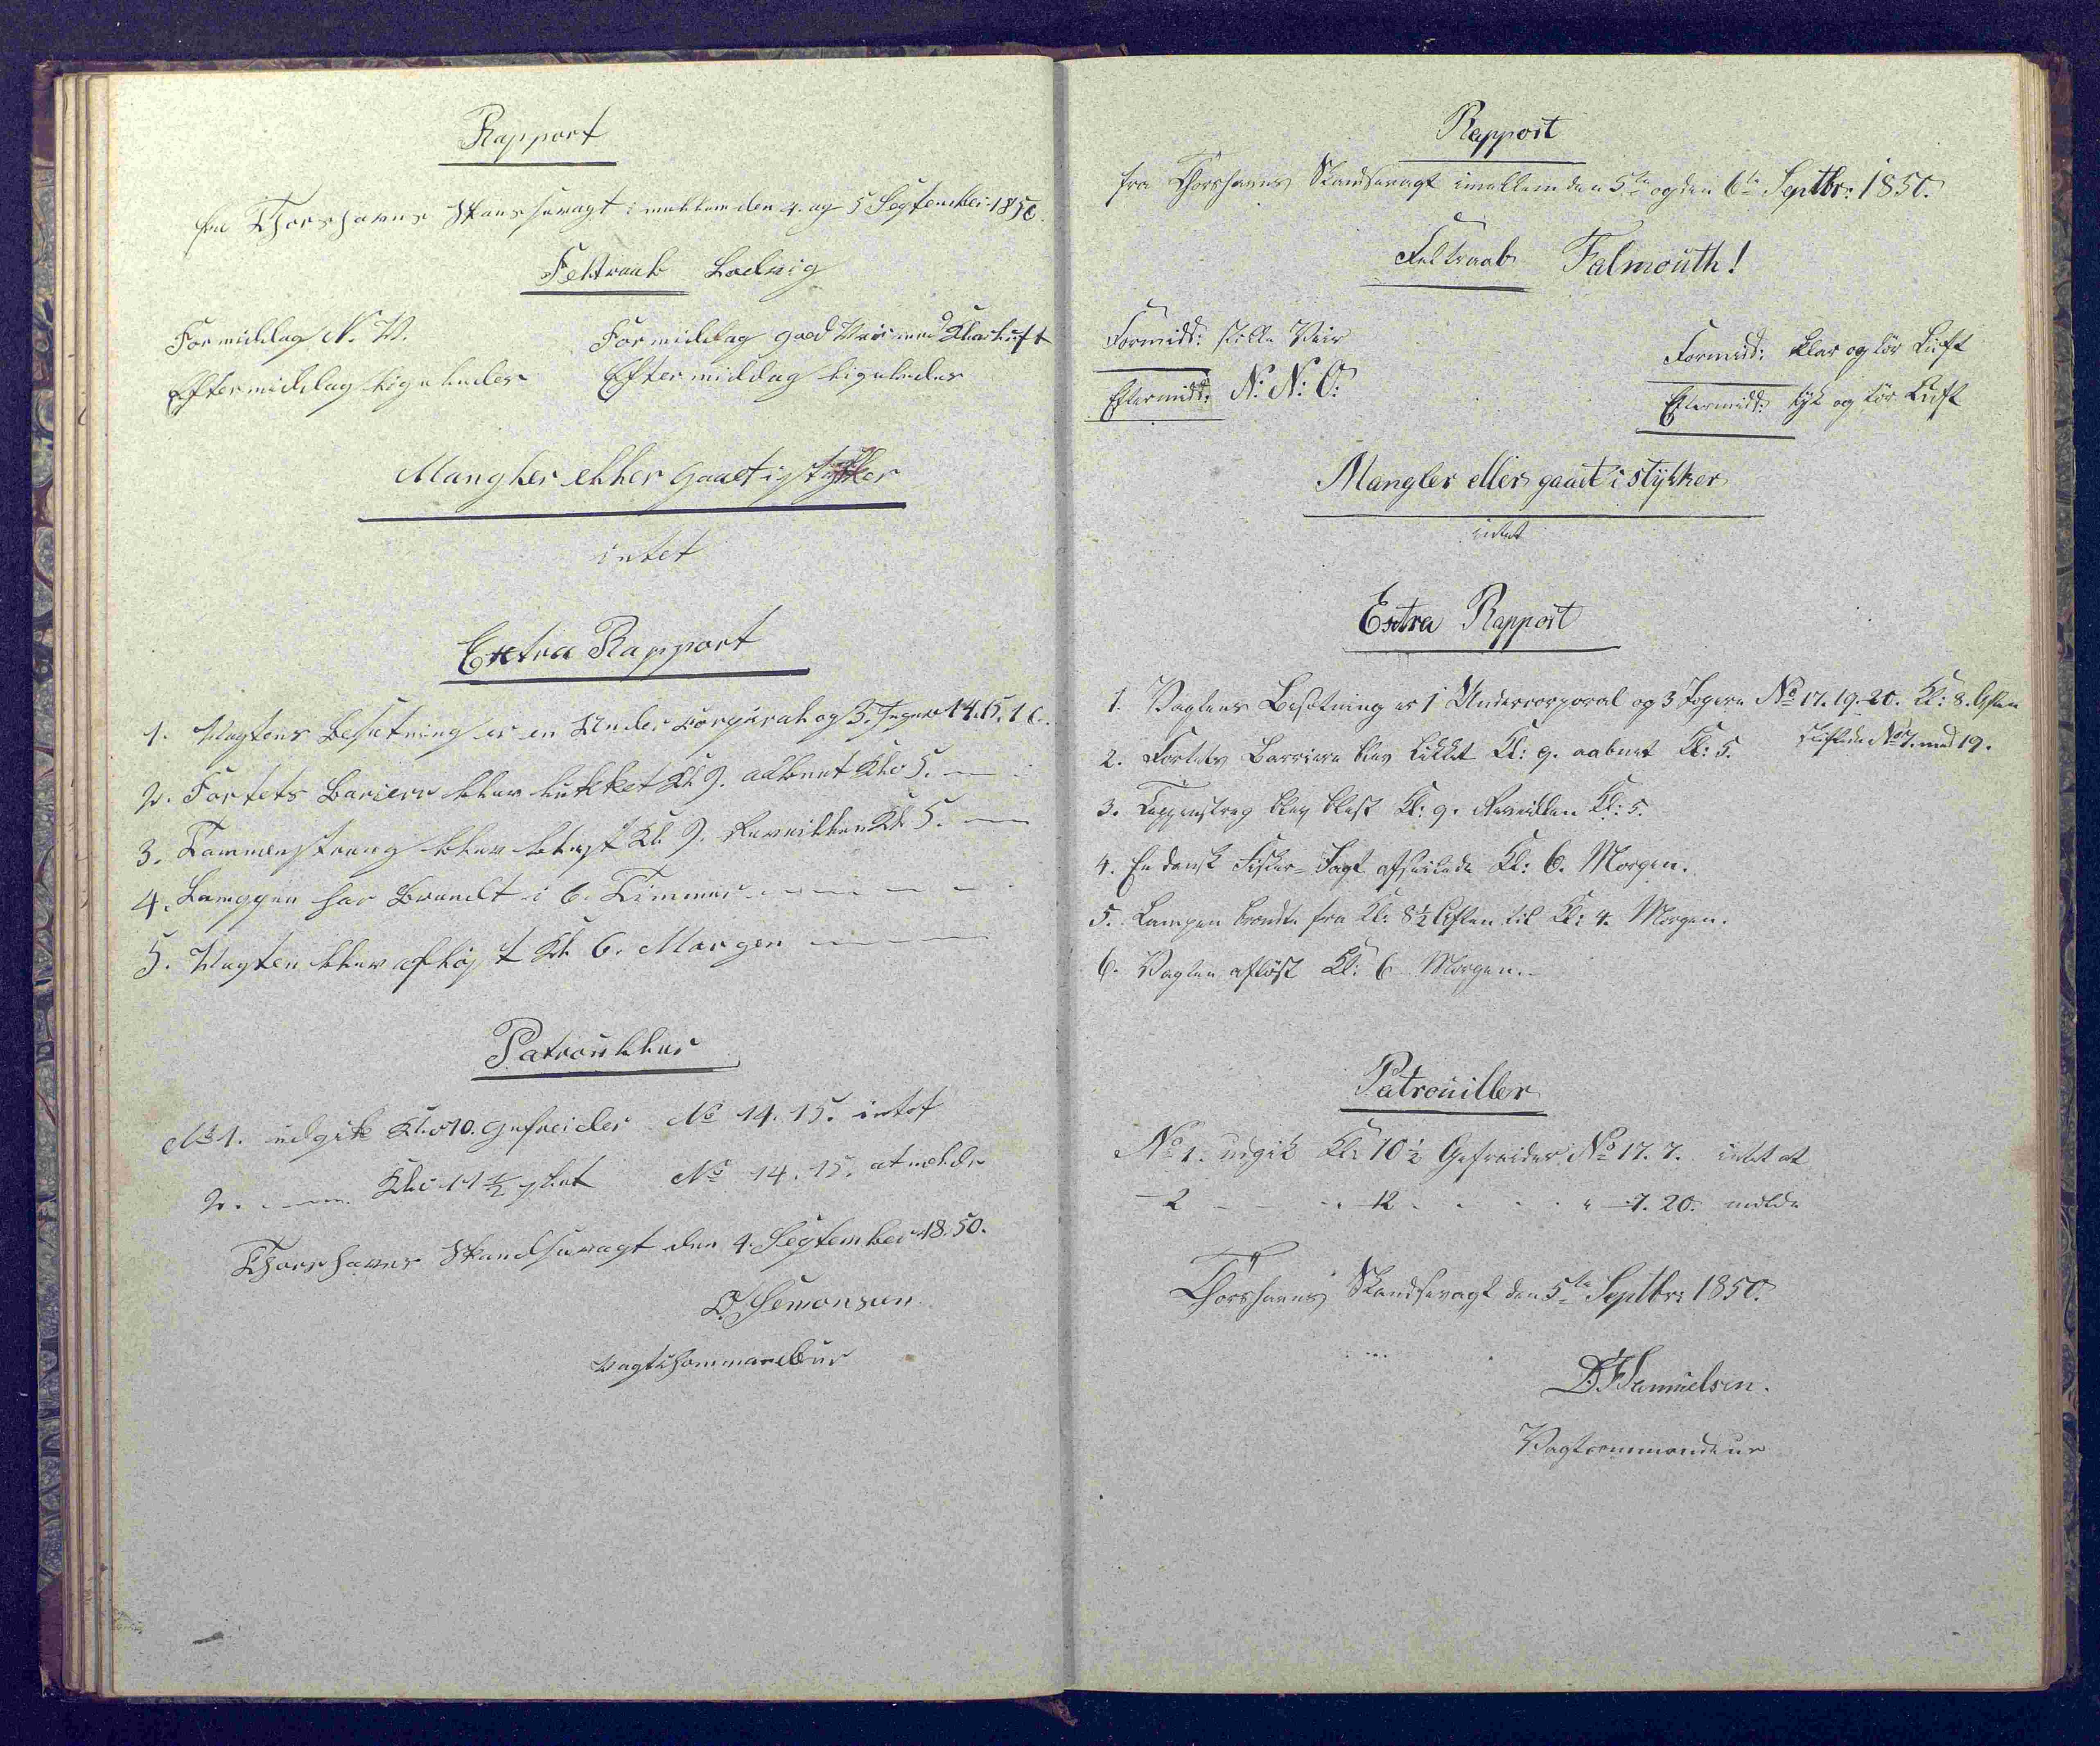 Rapport
fra Thorshavns Skansevagt imellem den 4. og 5 September 1850.
Feltraab Lodvig
Formiddag N. V. Formiddag god Veir med Klar Luft
Eftermiddag ligeledes Eftermiddag ligeledes
Mangler eller gaaet i stykker
intet
Extra Rapport
1. Vagtens Besætning er en Under Corporal og 3. Jegere 14. 15. 16.
2. Fortets Bariere blev lukket Kl. 9. aabnet Kl: 5.
3. Tammenstraag blev blæst Kl. 9. Reveillen Kl. 5.
4. Lamppen har Brændt i 6. Timmer
5. Vagten blev afløst Kl. 6. Morgen
Patrouller
No 1. udgik Kl. 10. Gefreider No 14. 15. intet
2. Kl: 11 1/2 No 14. 15. at melde
Thorshavns Skandsevagt den 4. September 1850.
O. Semonsen
Vagtkommandeur
Rapport
fra Thorshavns Skandsevagt imellem den 5te og den 6te Septbr: 1850.
Feltraab Falmouth!
Formidd: stille Veir Formidd: klar og tör Luft
Eftermidd: N: N: O: Eftermidd: tyk og tör Luft
Mangler eller gaaet i stykker
intet
Extra Rapport
1. Vagtens Besætning er 1 Undercorporal og 3 Jegere No 17. 19. 20. Kl: 8. Aften
skiftede No 7. med 19.
2. Fortets Barriere blev lukket Kl: 9. aabnet Kl: 5.
3. Tappenstreg blev blæst Kl: 9. Reveillen Kl: 5.
4. En dansk Fisker-Jagt afseilede Kl: 6. Morgen.
5. Lampen brændte fra Kl: 8 1/2 Aften til Kl: 4. Morgen.
6. Vagten aflöst Kl: 6 Morgen.
Patrouiller
No 1. udgik Kl: 10 1/2 Gefreider No 17. 7. intet at
- 2 - - " 12 " - 7. 20. melde
Thorshavns Skandsevagt den 5te Septbr: 1850.
D. Samuelsen.
Vagtcommandeur